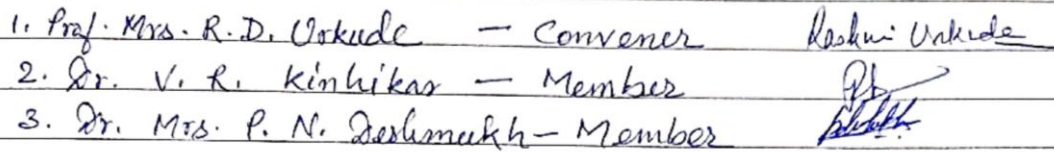 1. Prof. Mrs. R. D. Urkude — Convener Rashmi Urkude
2. Dr. V. R. Kinhikar — Member
3. Dr. Mrs. P. N. Deshmukh — Member